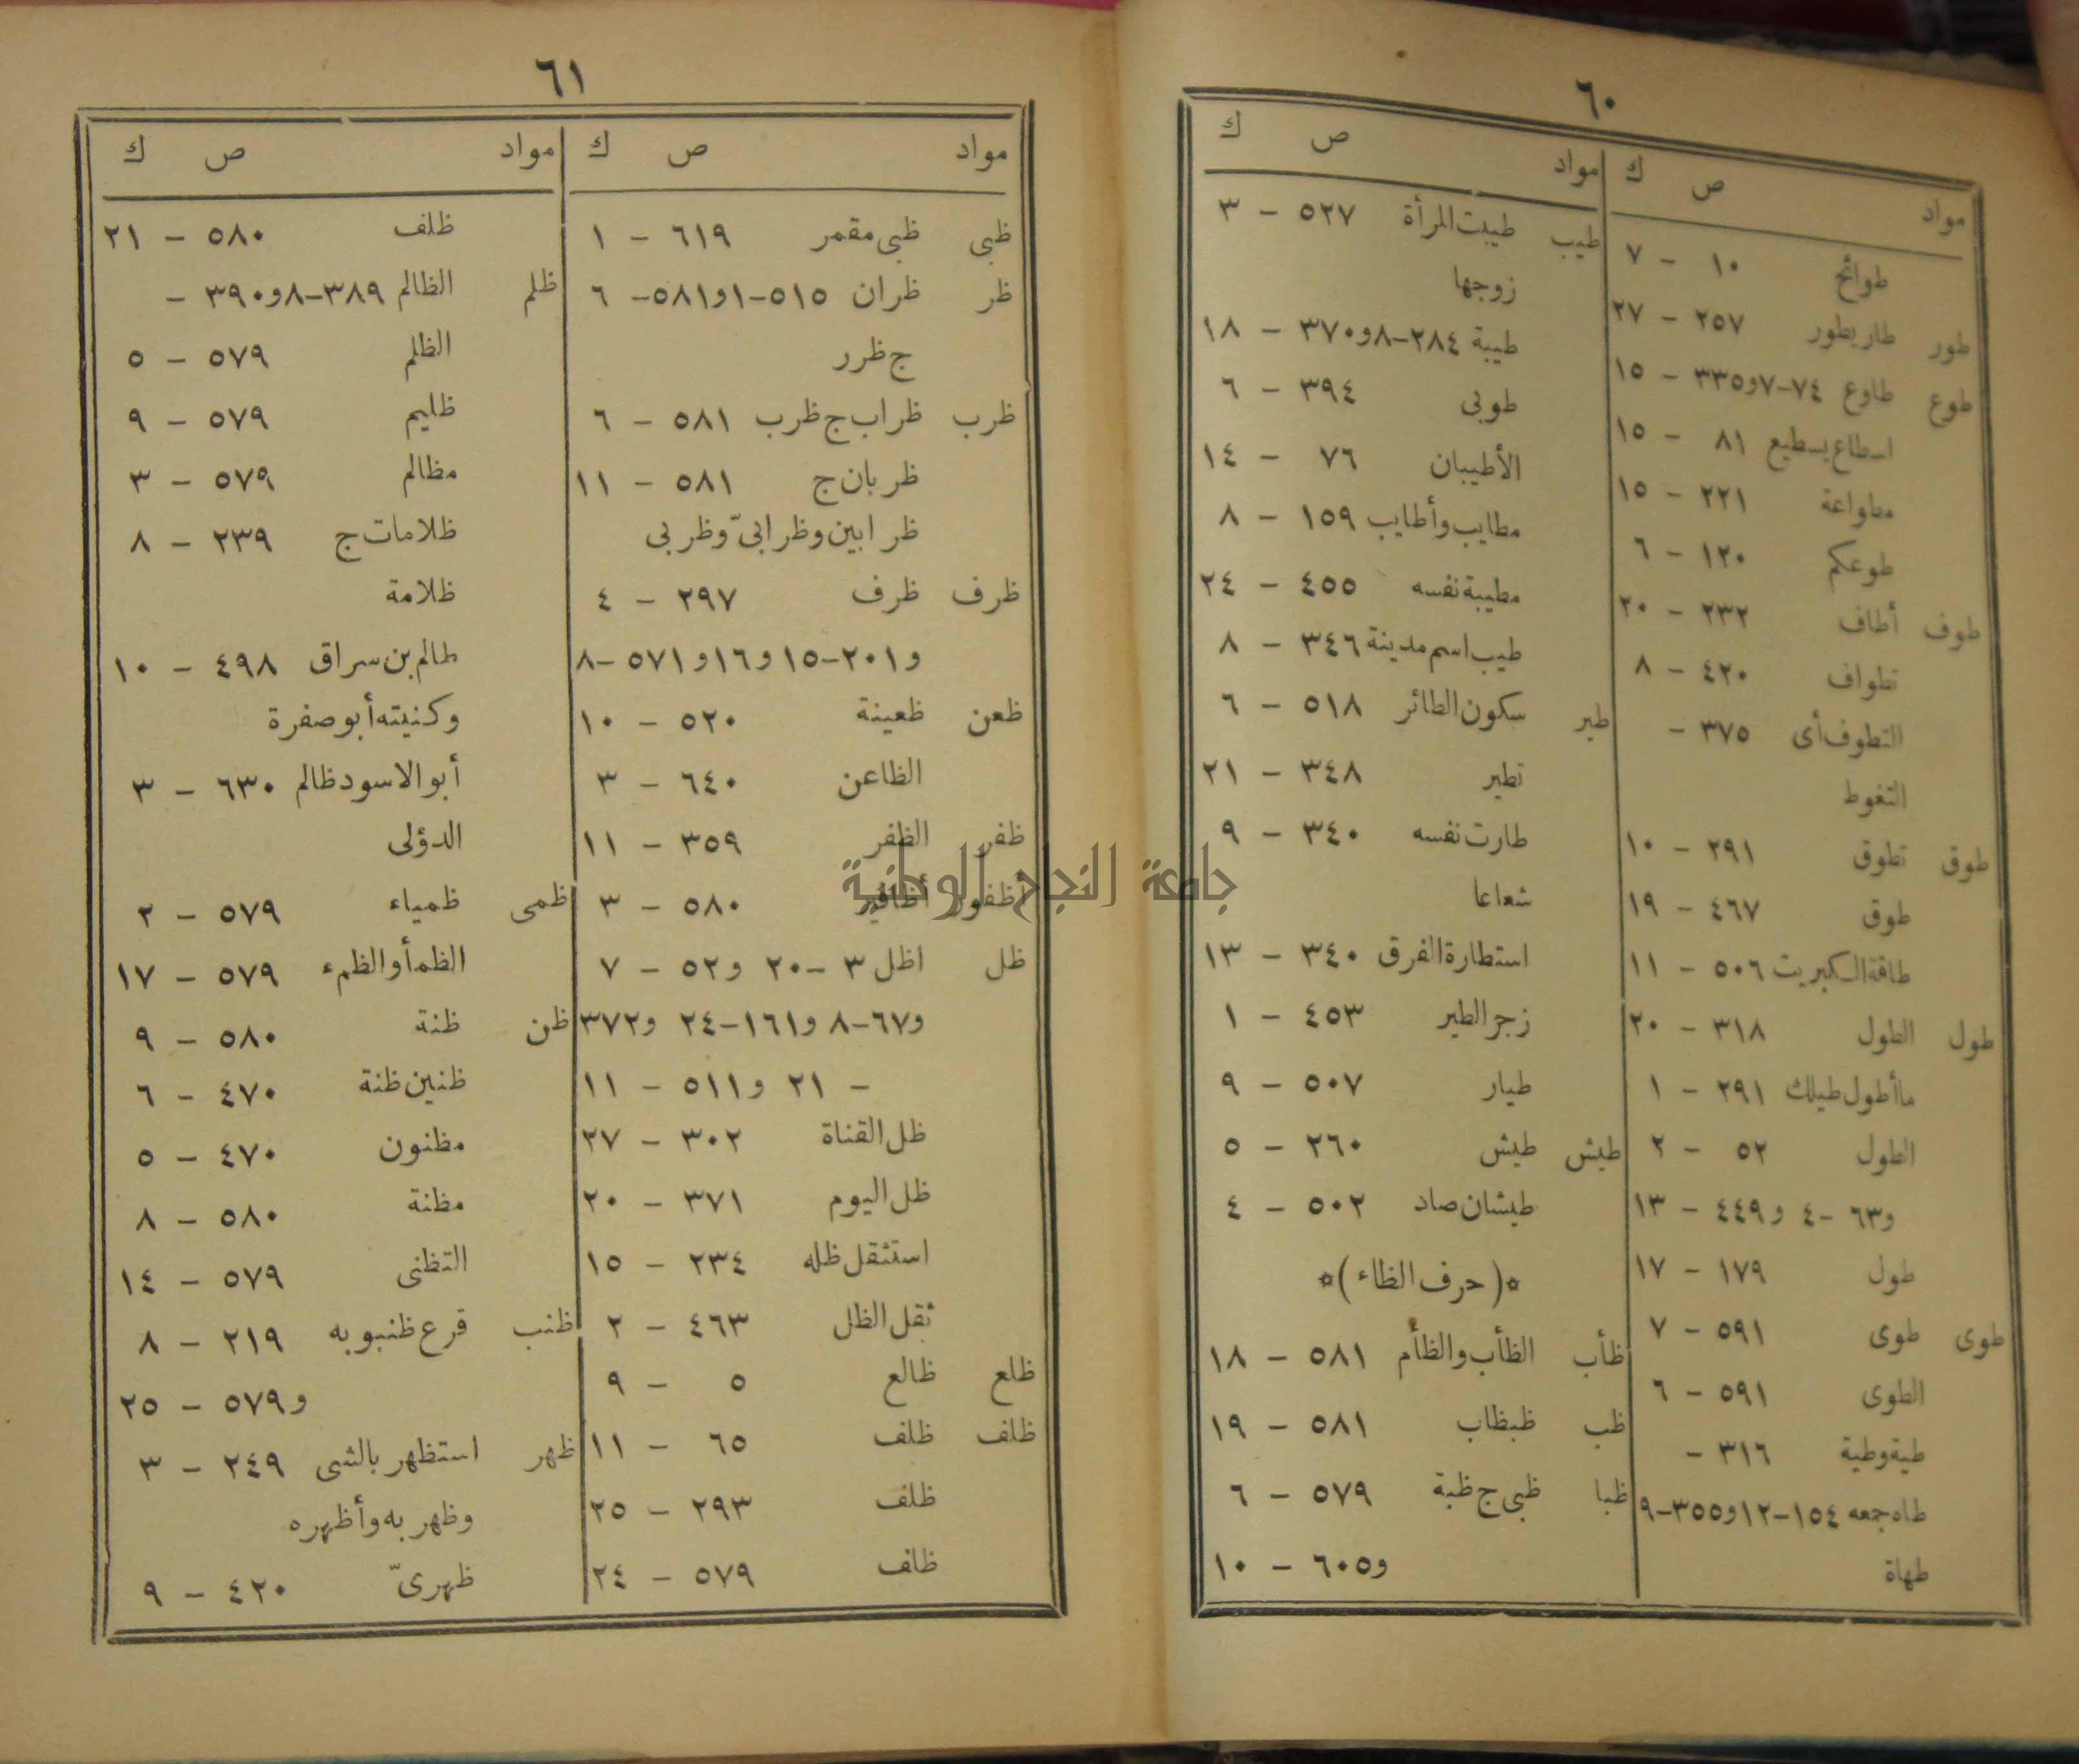 ٦٠
مواد ص ك
طوائح ١٠ – ٧
طور طار يطور ٢٥٧ – ٢٧
طوع طاوع ٧٤–٧و٣٣٥ – ١٥
اسطاع يسطيع ٨١ – ١٥
مطواعة ٢٢١ – ١٥
طوعكم ١٢٠ – ٦
طوف أطاف ٢٣٢ – ٢٠
تطواف ٤٢٠ – ٨
التطوف أى ٣٧٥ –
التغوط
طوق تطوق ٢٩١ – ١٠
طوق ٤٦٧ – ١٩
طاقة الكبريت ٥٠٦ – ١١
طول الطول ٣١٨ – ٢٠
ما أطول طيلك ٢٩١ – ١
الطول ٥٢ – ٢
و٦٣ –٤ و٤٤٩ – ١٣
طول ١٧٩ – ١٧
طوى طوى ٥٩١ – ٧
الطوى ٥٩١ – ٦
طية وطية ٣١٦ –
طاه جمعه ١٥٤–١٢و٣٥٥–٩
طهاة
مواد ص ك
طيب طيبت المرأة ٥٢٧ – ٣
زوجها
طيبة ٢٨٤–٨و٣٧٠ – ١٨
طوبى ٣٩٤ – ٦
الأطيبان ٧٦ – ١٤
مطايب وأطايب ١٥٩ – ٨
مطيبة نفسه ٤٥٥ – ٢٤
طيب اسم مدينة ٣٤٦ – ٨
طير سكون الطائر ٥١٨ – ٦
تطير ٣٤٨ – ٢١
طارت نفسه ٣٤٠ – ٩
شعاعا
استطارة الفرق ٣٤٠ – ١٣
زجر الطير ٤٥٣ – ١
طيار ٥٠٧ – ٩
طيش طيش ٢٦٠ – ٥
طيشان صاد ٥٠٢ – ٤
*(حرف الظاء)*
ظأب الظأب والظأم ٥٨١ – ١٨
ظب ظبظاب ٥٨١ – ١٩
ظبا ظبى ج ظبة ٥٧٩ – ٦
و٦٠٥ – ١٠
٦١
مواد ص ك
ظبى ظبى مقمر ٦١٩ – ١
ظر ظران ٥١٥–١و٥٨١– ٦
ج ظرر
ظرب ظراب ج ظرب ٥٨١ – ٦
ظربان ج ٥٨١ – ١١
ظرابين وظرابىّ وظربى
ظرف ظرف ٢٩٧ – ٤
و٢٠١–١٥ و١٦و٥٧١ –٨
ظعن ظعينة ٥٢٠ – ١٠
الظاعن ٦٤٠ – ٣
ظفر الظفر ٣٥٩ – ١١
أظفور أظافير ٥٨٠ – ٣
ظل اظل ٣ –٢٠ و٥٢ – ٧
و٦٧–٨ و١٦١–٢٤ و٣٧٢
– ٢١ و٥١١ – ١١
ظل القناة ٣٠٢ – ٢٧
ظل اليوم ٣٧١ – ٢٠
استثقل ظله ٢٣٤ – ١٥
ثقل الظل ٤٦٣ – ٢
ظلع ظالع ٥ – ٩
ظلف ظلف ٦٥ – ١١
ظلف ٢٩٣ – ٢٥
ظلف ٥٧٩ – ٢٤
مواد ص ك
ظلف ٥٨٠ – ٢١
ظلم الظالم ٣٨٩–٨و٣٩٠ –
الظلم ٥٧٩ – ٥
ظليم ٥٧٩ – ٩
مظالم ٥٧٩ – ٣
ظلامات ج ٢٣٩ – ٨
ظلامة
ظالم بن سراق ٤٩٨ – ١٠
وكنيته أبو صفرة
أبو الاسود ظالم ٦٣٠ – ٣
الدؤلى
ظمى ظمياء ٥٧٩ – ٢
الظمأ والظمء ٥٧٩ – ١٧
ظن ظنة ٥٨٠ – ٩
ظنين ظنة ٤٧٠ – ٦
مظنون ٤٧٠ – ٥
مظنة ٥٨٠ – ٨
التظنى ٥٧٩ – ١٤
ظنب قرع ظنبوبه ٢١٩ – ٨
و٥٧٩ – ٢٥
ظهر استظهر بالشى ٢٤٩ – ٣
وظهر به وأظهره
ظهرىّ ٤٢٠ – ٩
جامعة النجاح الوطنية